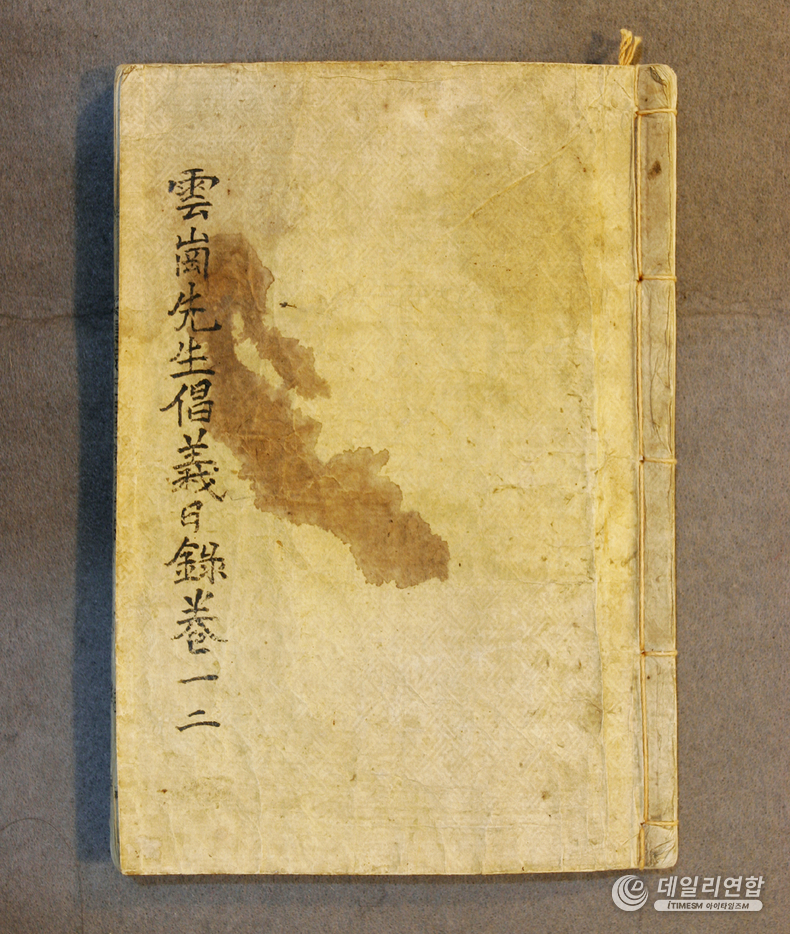 雲崗先生倡義日錄卷一二
데일리연합
iTIMESM 아이타임즈M